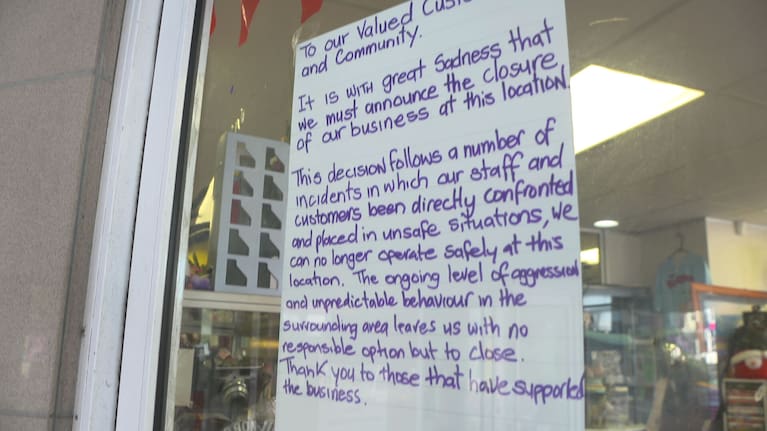 To our Valued Custo
and Community.
It is with great sadness that
we must announce the closure
of our business at this location.
This decision follows a number of
incidents in which our staff and
customers been directly confronted
and placed in unsafe situations, we
can no longer operate safely at this
location. The ongoing level of aggression
and unpredictable behaviour in the
surrounding area leaves us with no
responsible option but to close.
Thank you to those that have supported
the business.